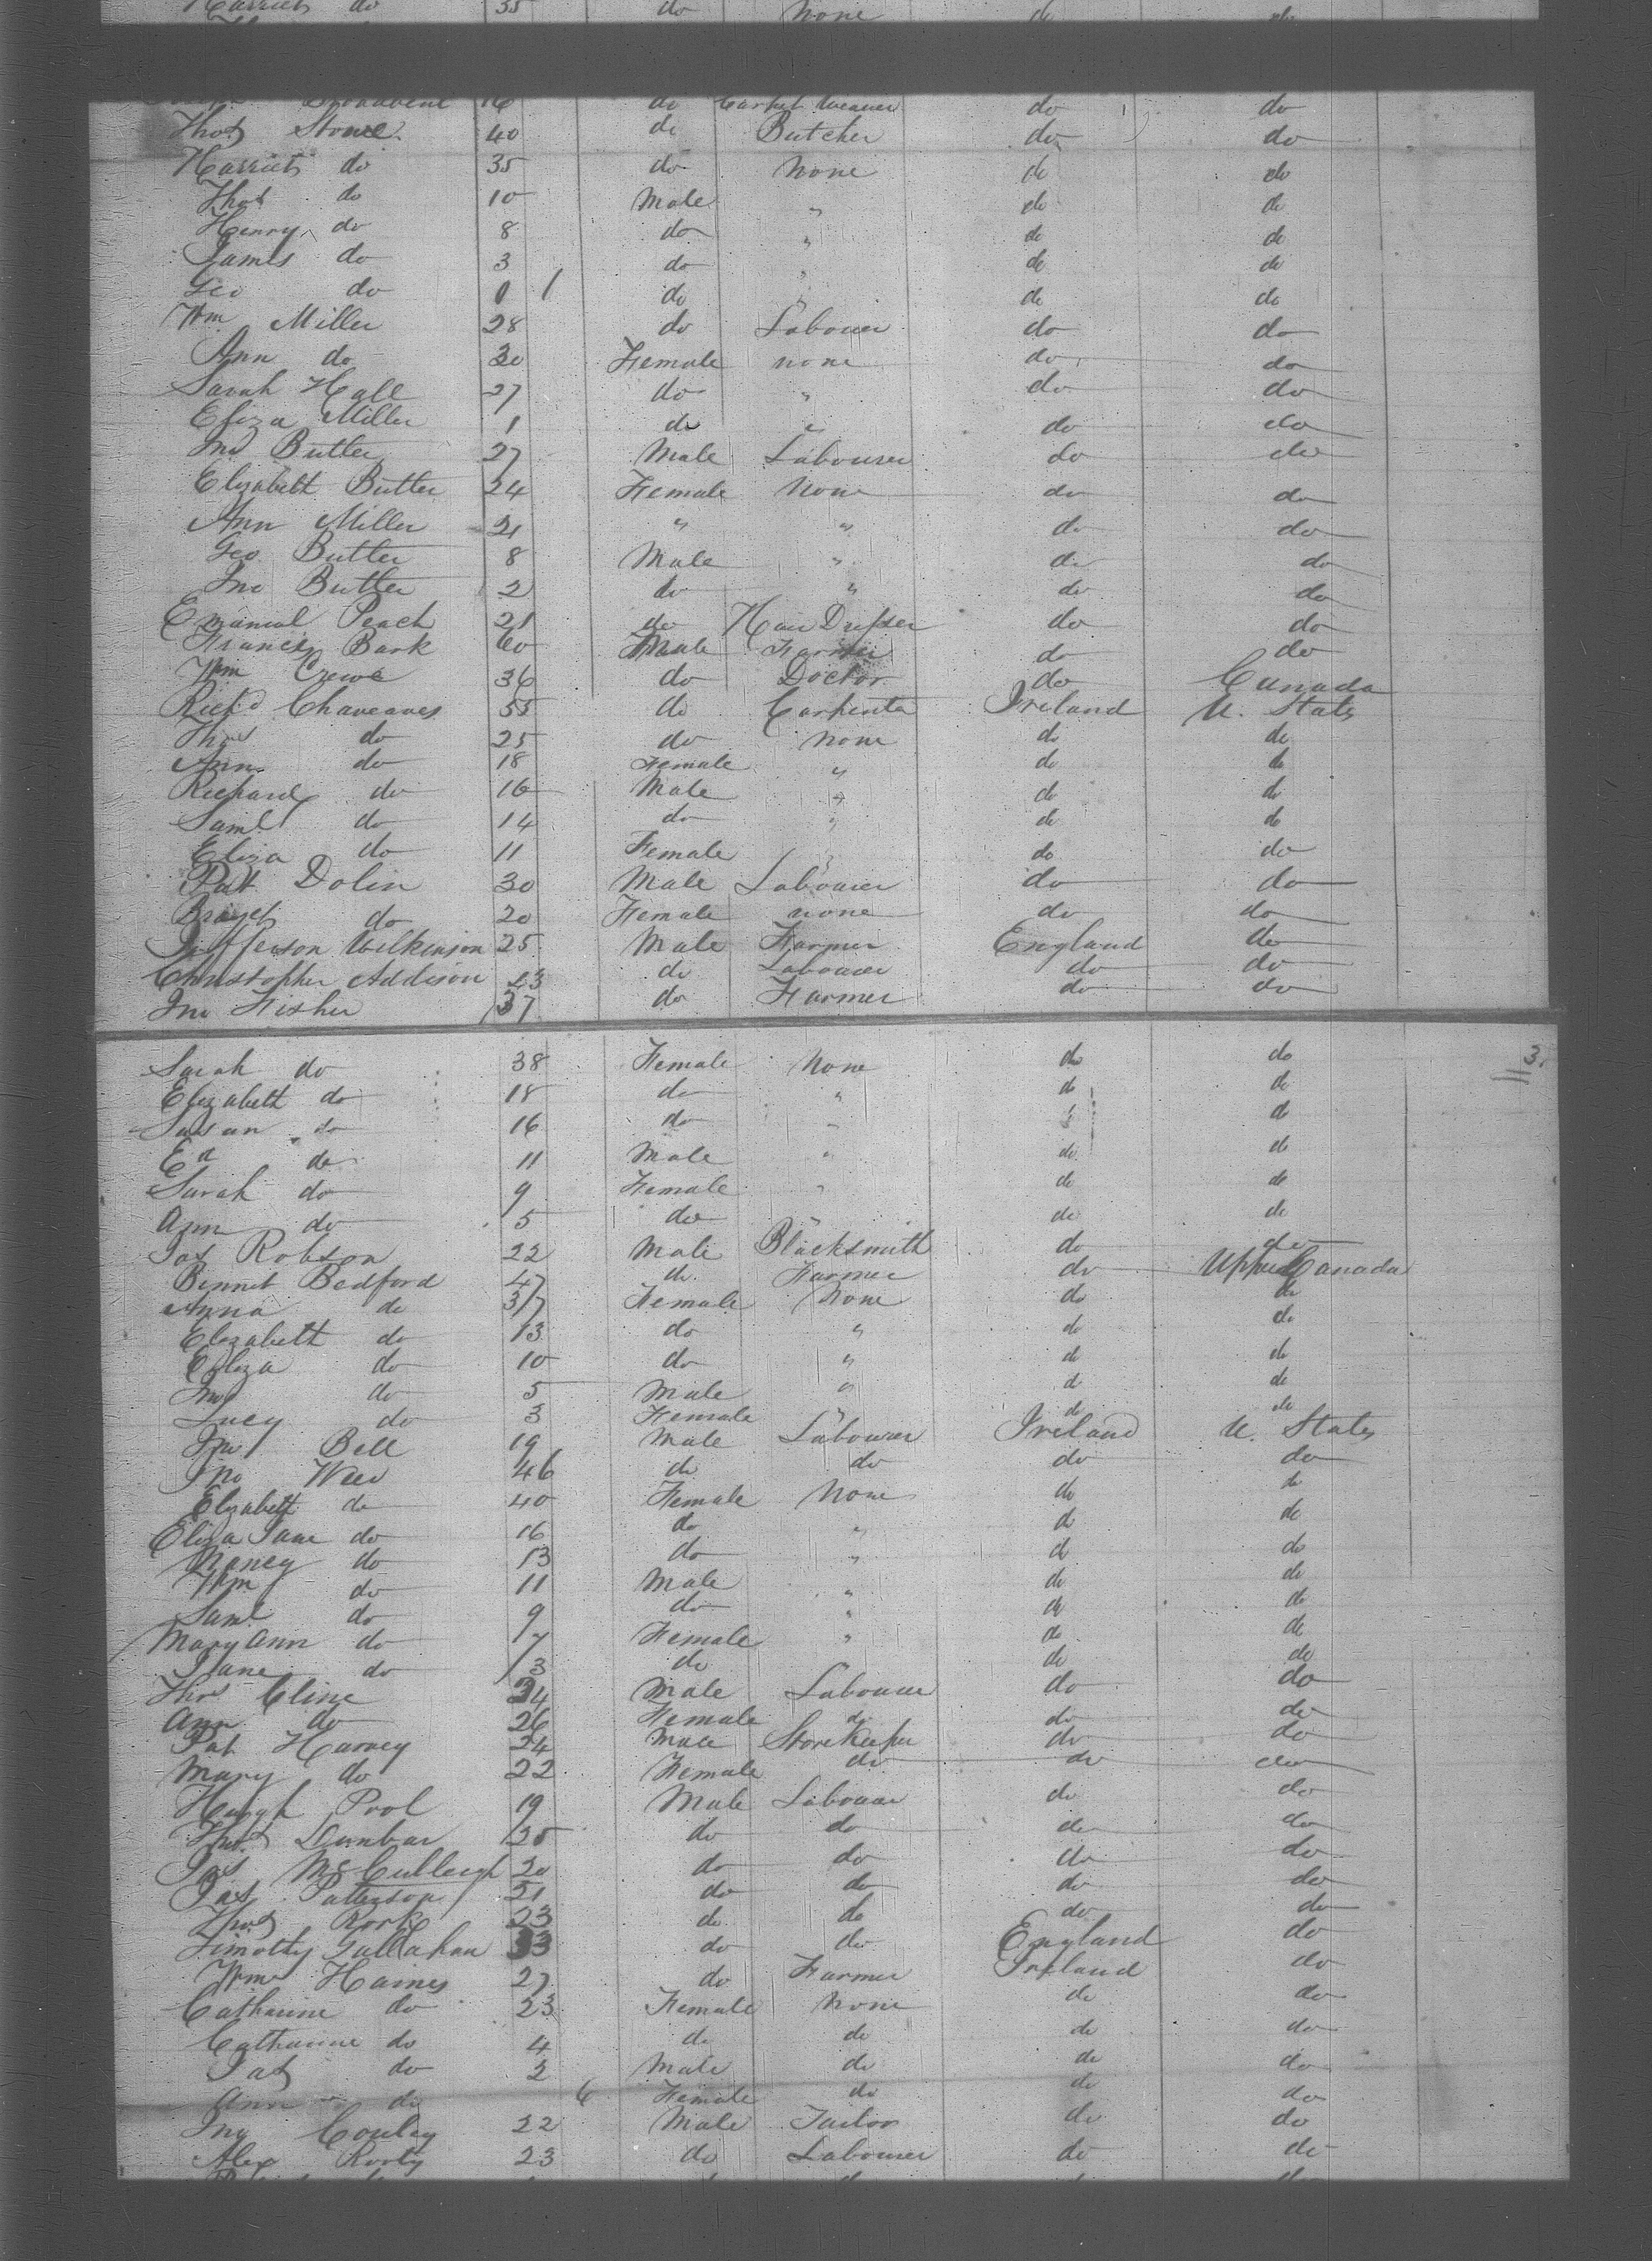 Harriets do 35 do None do do
Broadbent 16 do Carpet Weaver do do
Thos Stowe 40 do Butcher do do
Harriets do 35 do None do do
Thos do 10 Male " do do
Henry do 8 do " do do
James do 3 do " do do
Geo do 0 1 do " do do
Wm Miller 28 do Labourer do do
Ann do 30 Female none do do
Sarah Hall 27 do " do do
Eliza Miller 1 do " do do
Jno Butler 27 Male Labourer do do
Elizabeth Butler 24 Female None do do
Ann Miller 21 " " do do
Geo Butler 8 Male " do do
Jno Butler 2 do " do do
Emanuel Peach 21 do Hair Dresser do do
Francis Bark 60 Male Farmer do do
Wm Crewe 36 do Doctor do Canada
Richd Chaveaves 55 do Carpenter Ireland U. States
Thos do 25 do None do do
Ann do 18 Female " do do
Richard do 16 Male " do do
Saml do 14 do " do do
Eliza do 11 Female " do do
Pat Dolin 30 Male Labourer do do
Bridget do 20 Female none do do
Jefferson Wilkinson 25 Male Farmer England do
Christopher Addison 23 do Labourer do do
Jno Fisher 37 do Farmer do do
3.
Sarah do 38 Female None do do
Elizabeth do 18 do " do do
Susan do 16 do " do do
Ed do 11 Male " do do
Sarah do 9 Female " do do
Ann do 5 do " do do
Jas Robson 22 Male Blacksmith do do
Bennet Bedford 47 do Farmer do Upper Canada
Anna do 37 Female None do do
Elizabeth do 13 do " do do
Eliza do 10 do " do do
Jno do 5 Male " do do
Lucy do 3 Female " do do
Jno Bell 19 Male Labourer Ireland U. States
Jno Weer 46 do do do do
Elizabeth do 40 Female None do do
Eliza Jane do 16 do " do do
Nancy do 13 do " do do
Wm do 11 Male " do do
Saml do 9 do " do do
Mary Ann do 7 Female " do do
Jane do 3 do " do do
Thos Cline 24 Male Labourer do do
Ann do 26 Female do do do
Pat Harvey 24 Male Storekeeper do do
Mary do 22 Female do do do
Hugh Pool 19 Male Labourer do do
Thos Dunbar 25 do do do do
Jas McCulleigh 20 do do do do
Jas Patterson 21 do do do do
Thos Rork 23 do do do do
Timothy Gallahan 33 do do England do
Wm Haines 27 do Farmer Ireland do
Catharine do 23 Female None do do
Catharine do 4 do do do do
Pat do 2 Male do do do
Ann do 6 Female do do do
Jno Conley 22 Male Tailor do do
Alex Rorty 23 do Labourer do do